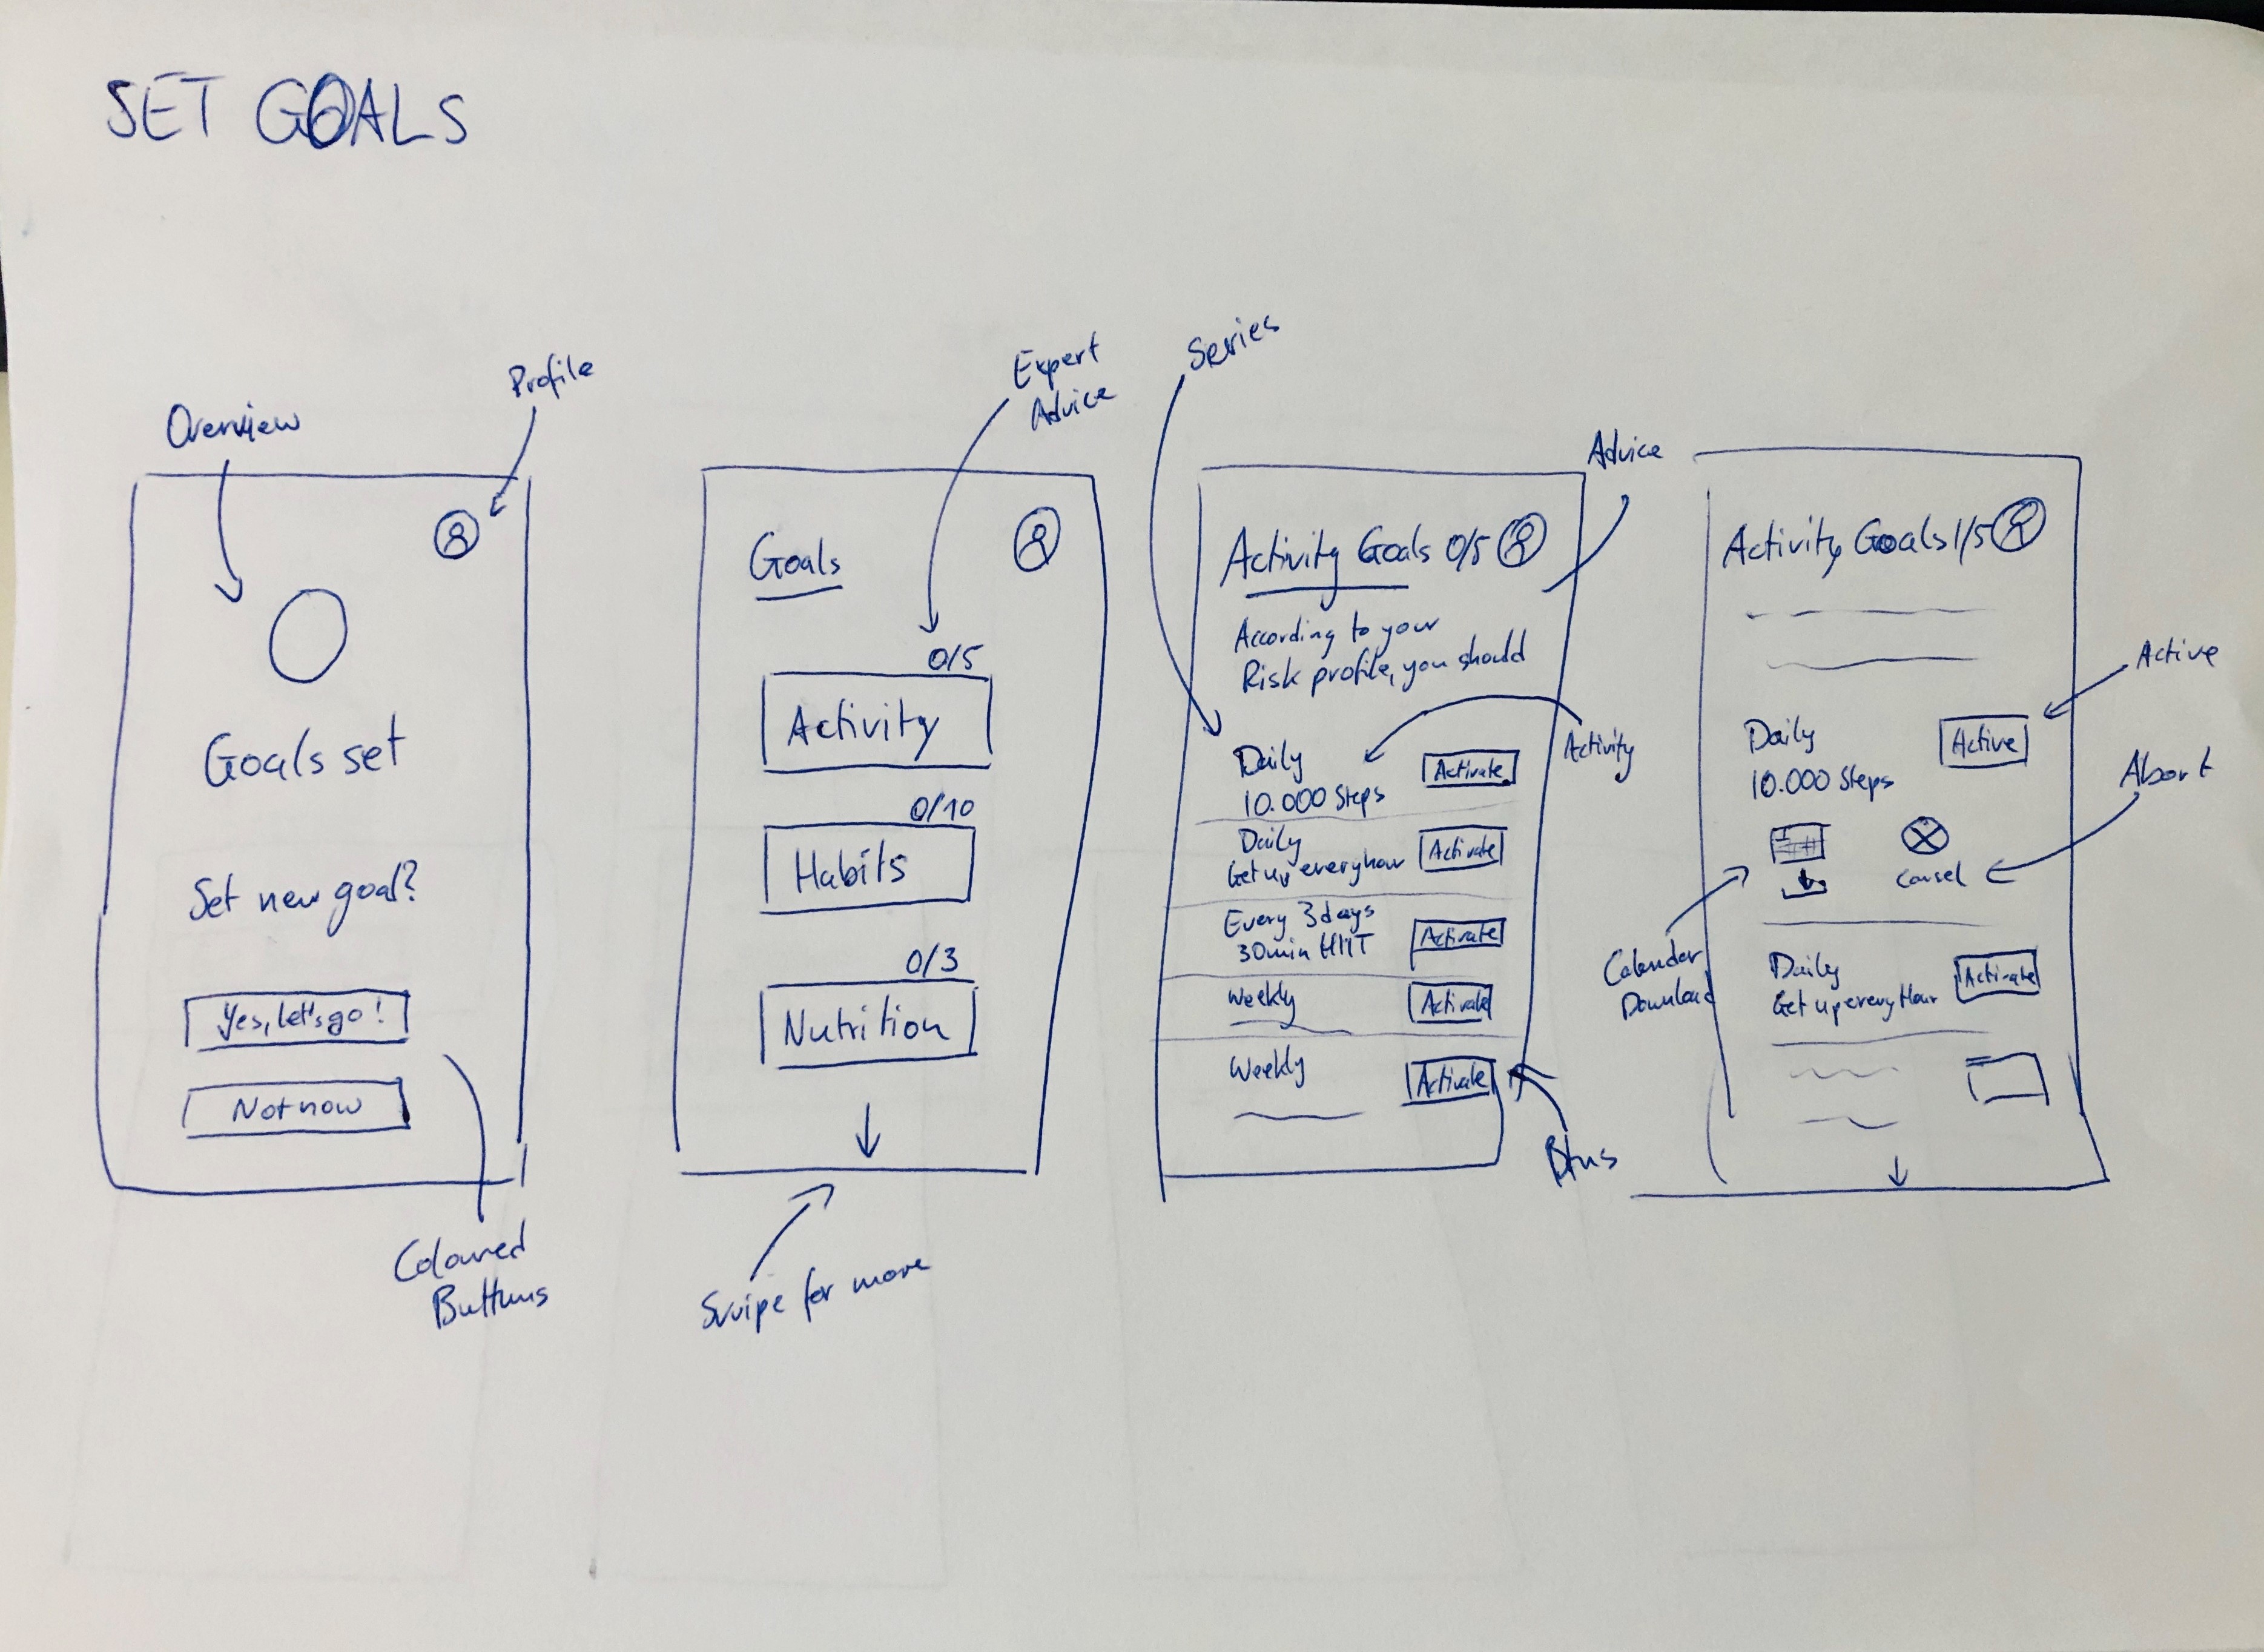 SET GOALS
Overview
Profile
Goals set
Set new goal?
Yes, let's go!
Not now
Coloured
Buttons
Expert
Advice
Goals
0/5
Activity
0/10
Habits
0/3
Nutrition
Swipe for more
Series
Advice
Activity Goals 0/5
According to your
Risk profile, you should
Activity
Daily
10.000 Steps
Activate
Daily
Get up every hour
Activate
Every 3 days
30min HIIT
Activate
Weekly
Activate
Weekly
Activate
Btns
Activity Goals 1/5
Active
Daily
10.000 Steps
Active
Abort
Cancel
Calender
Download
Daily
Get up every Hour
Activate